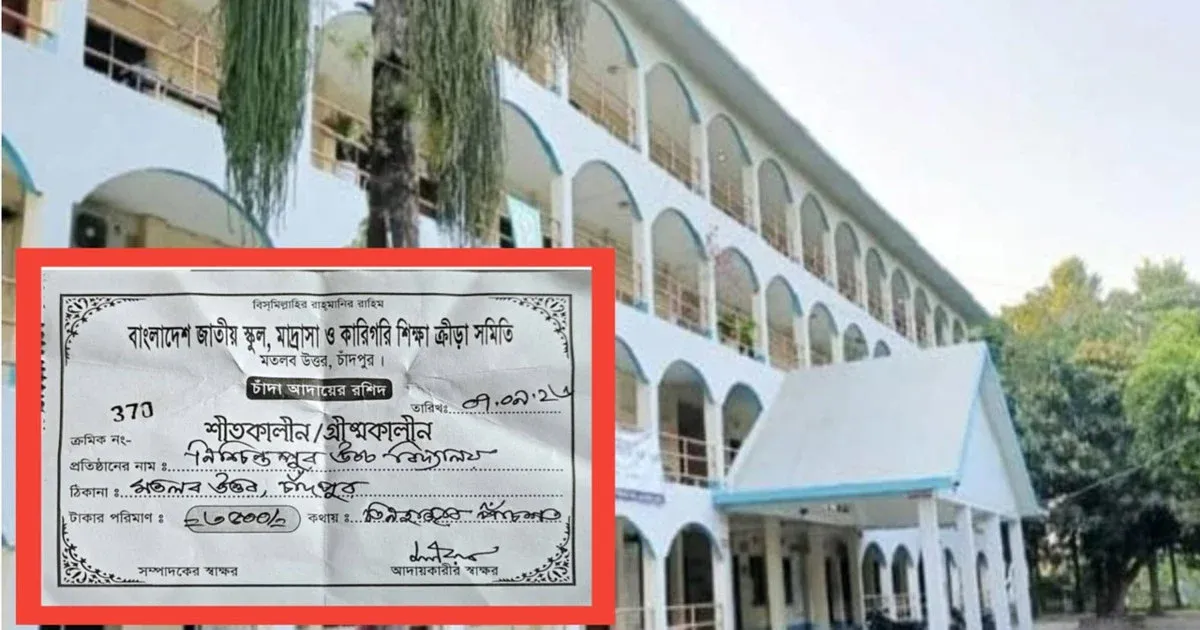 বিসমিল্লাহির রাহমানির রাহিম
বাংলাদেশ জাতীয় স্কুল, মাদ্রাসা ও কারিগরি শিক্ষা ক্রীড়া সমিতি
মতলব উত্তর, চাঁদপুর ।
চাঁদা আদায়ের রশিদ
370
তারিখঃ
শীতকালীন/গ্রীষ্মকালীন
ক্রমিক নং-
প্রতিষ্ঠানের নাম ঃ নিশ্চিন্তপুর উচ্চ বিদ্যালয়
ঠিকানা ঃ মতলব উত্তর, চাঁদপুর
টাকার পরিমাণ ঃ ৩৫০০/= কথায় ঃ তিনহাজার পাঁচশত
সম্পাদকের স্বাক্ষর
আদায়কারীর স্বাক্ষর